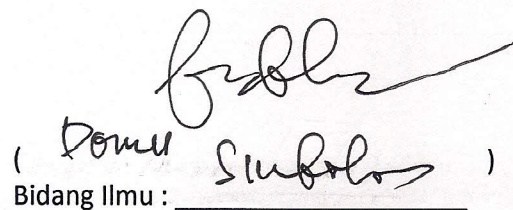 ( Domu Simbolon )
Bidang Ilmu : ____________________